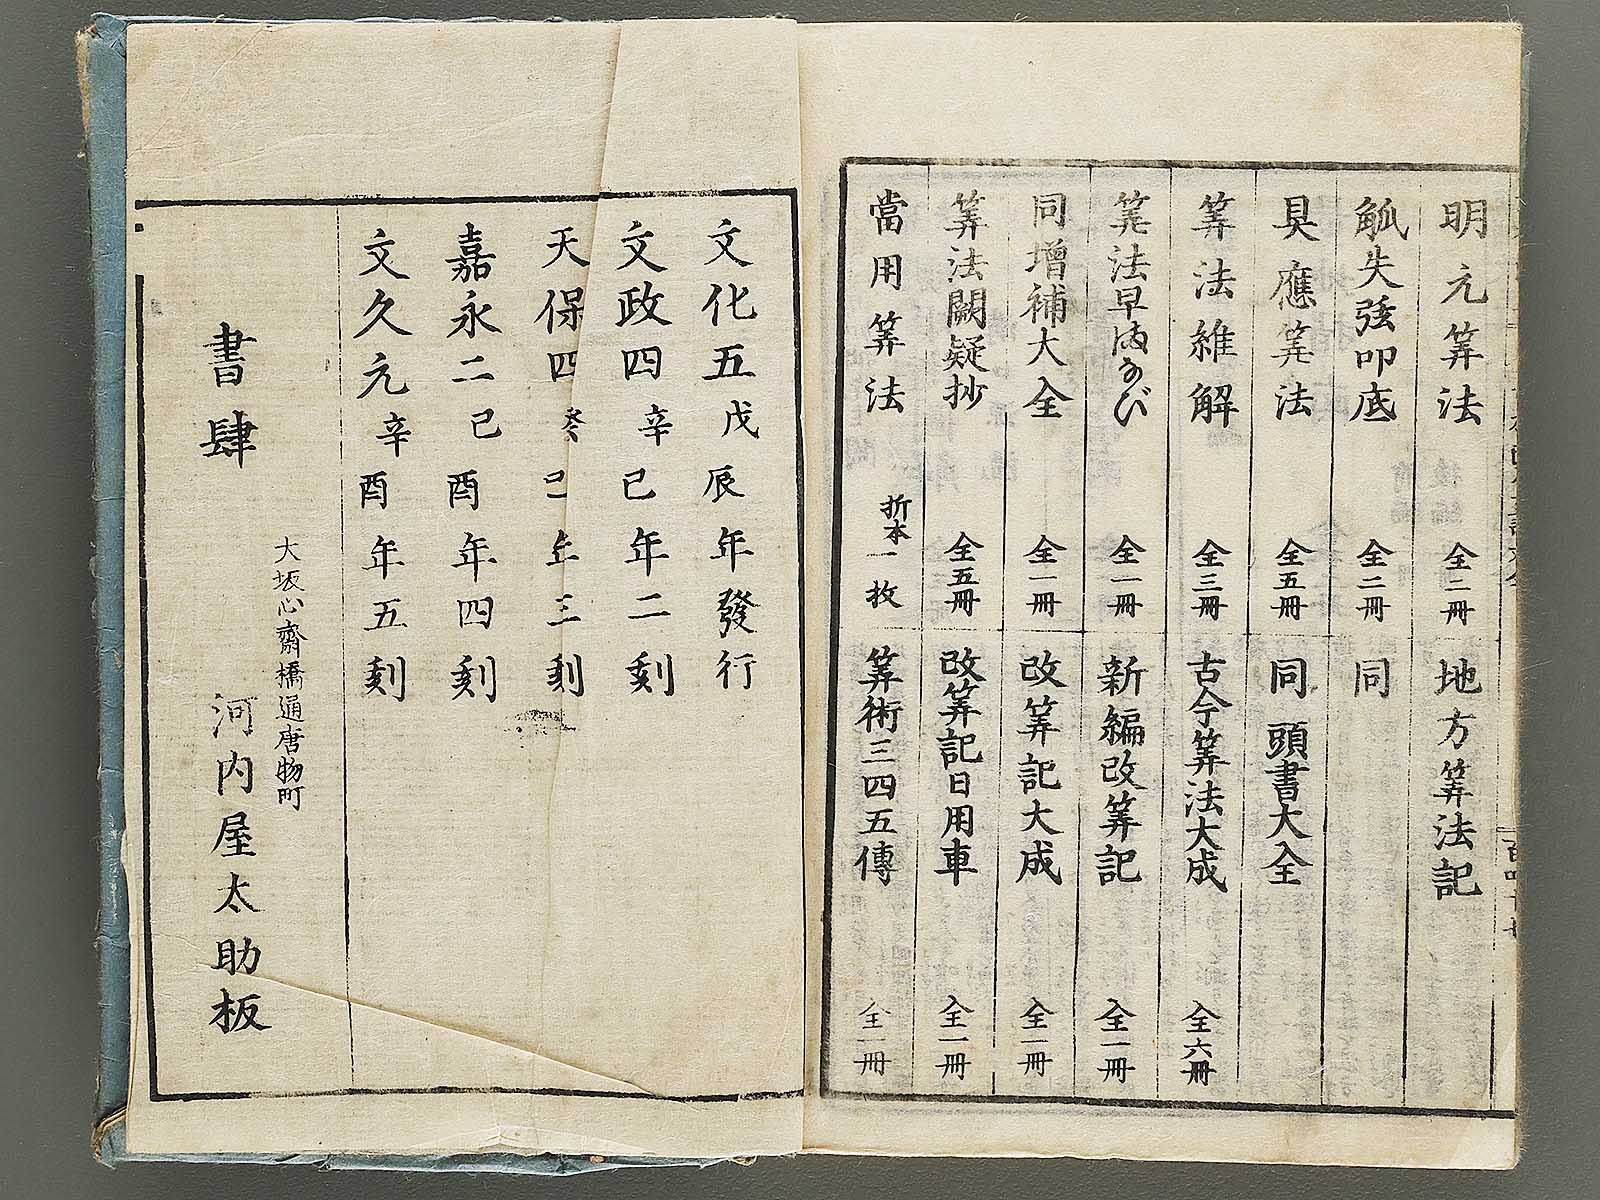 明元筭法 全二冊
觚矢弦叩底 全二冊
具應筭法 全五冊
筭法雑解 全三冊
筭法早まなび 全一冊
同増補大全 全一冊
筭法闕疑抄 全五冊
當用筭法 折本一枚
地方筭法記
同
同頭書大全
古今筭法大成 全六冊
新編改筭記 全一冊
改筭記大成 全一冊
改筭記日用車 全一冊
筭術三四五傳 全一冊
文化五戊辰年發行
文政四辛巳年二刻
天保四癸巳年三刻
嘉永二己酉年四刻
文久元辛酉年五刻
大坂心齋橋通唐物町
書肆 河内屋太助板